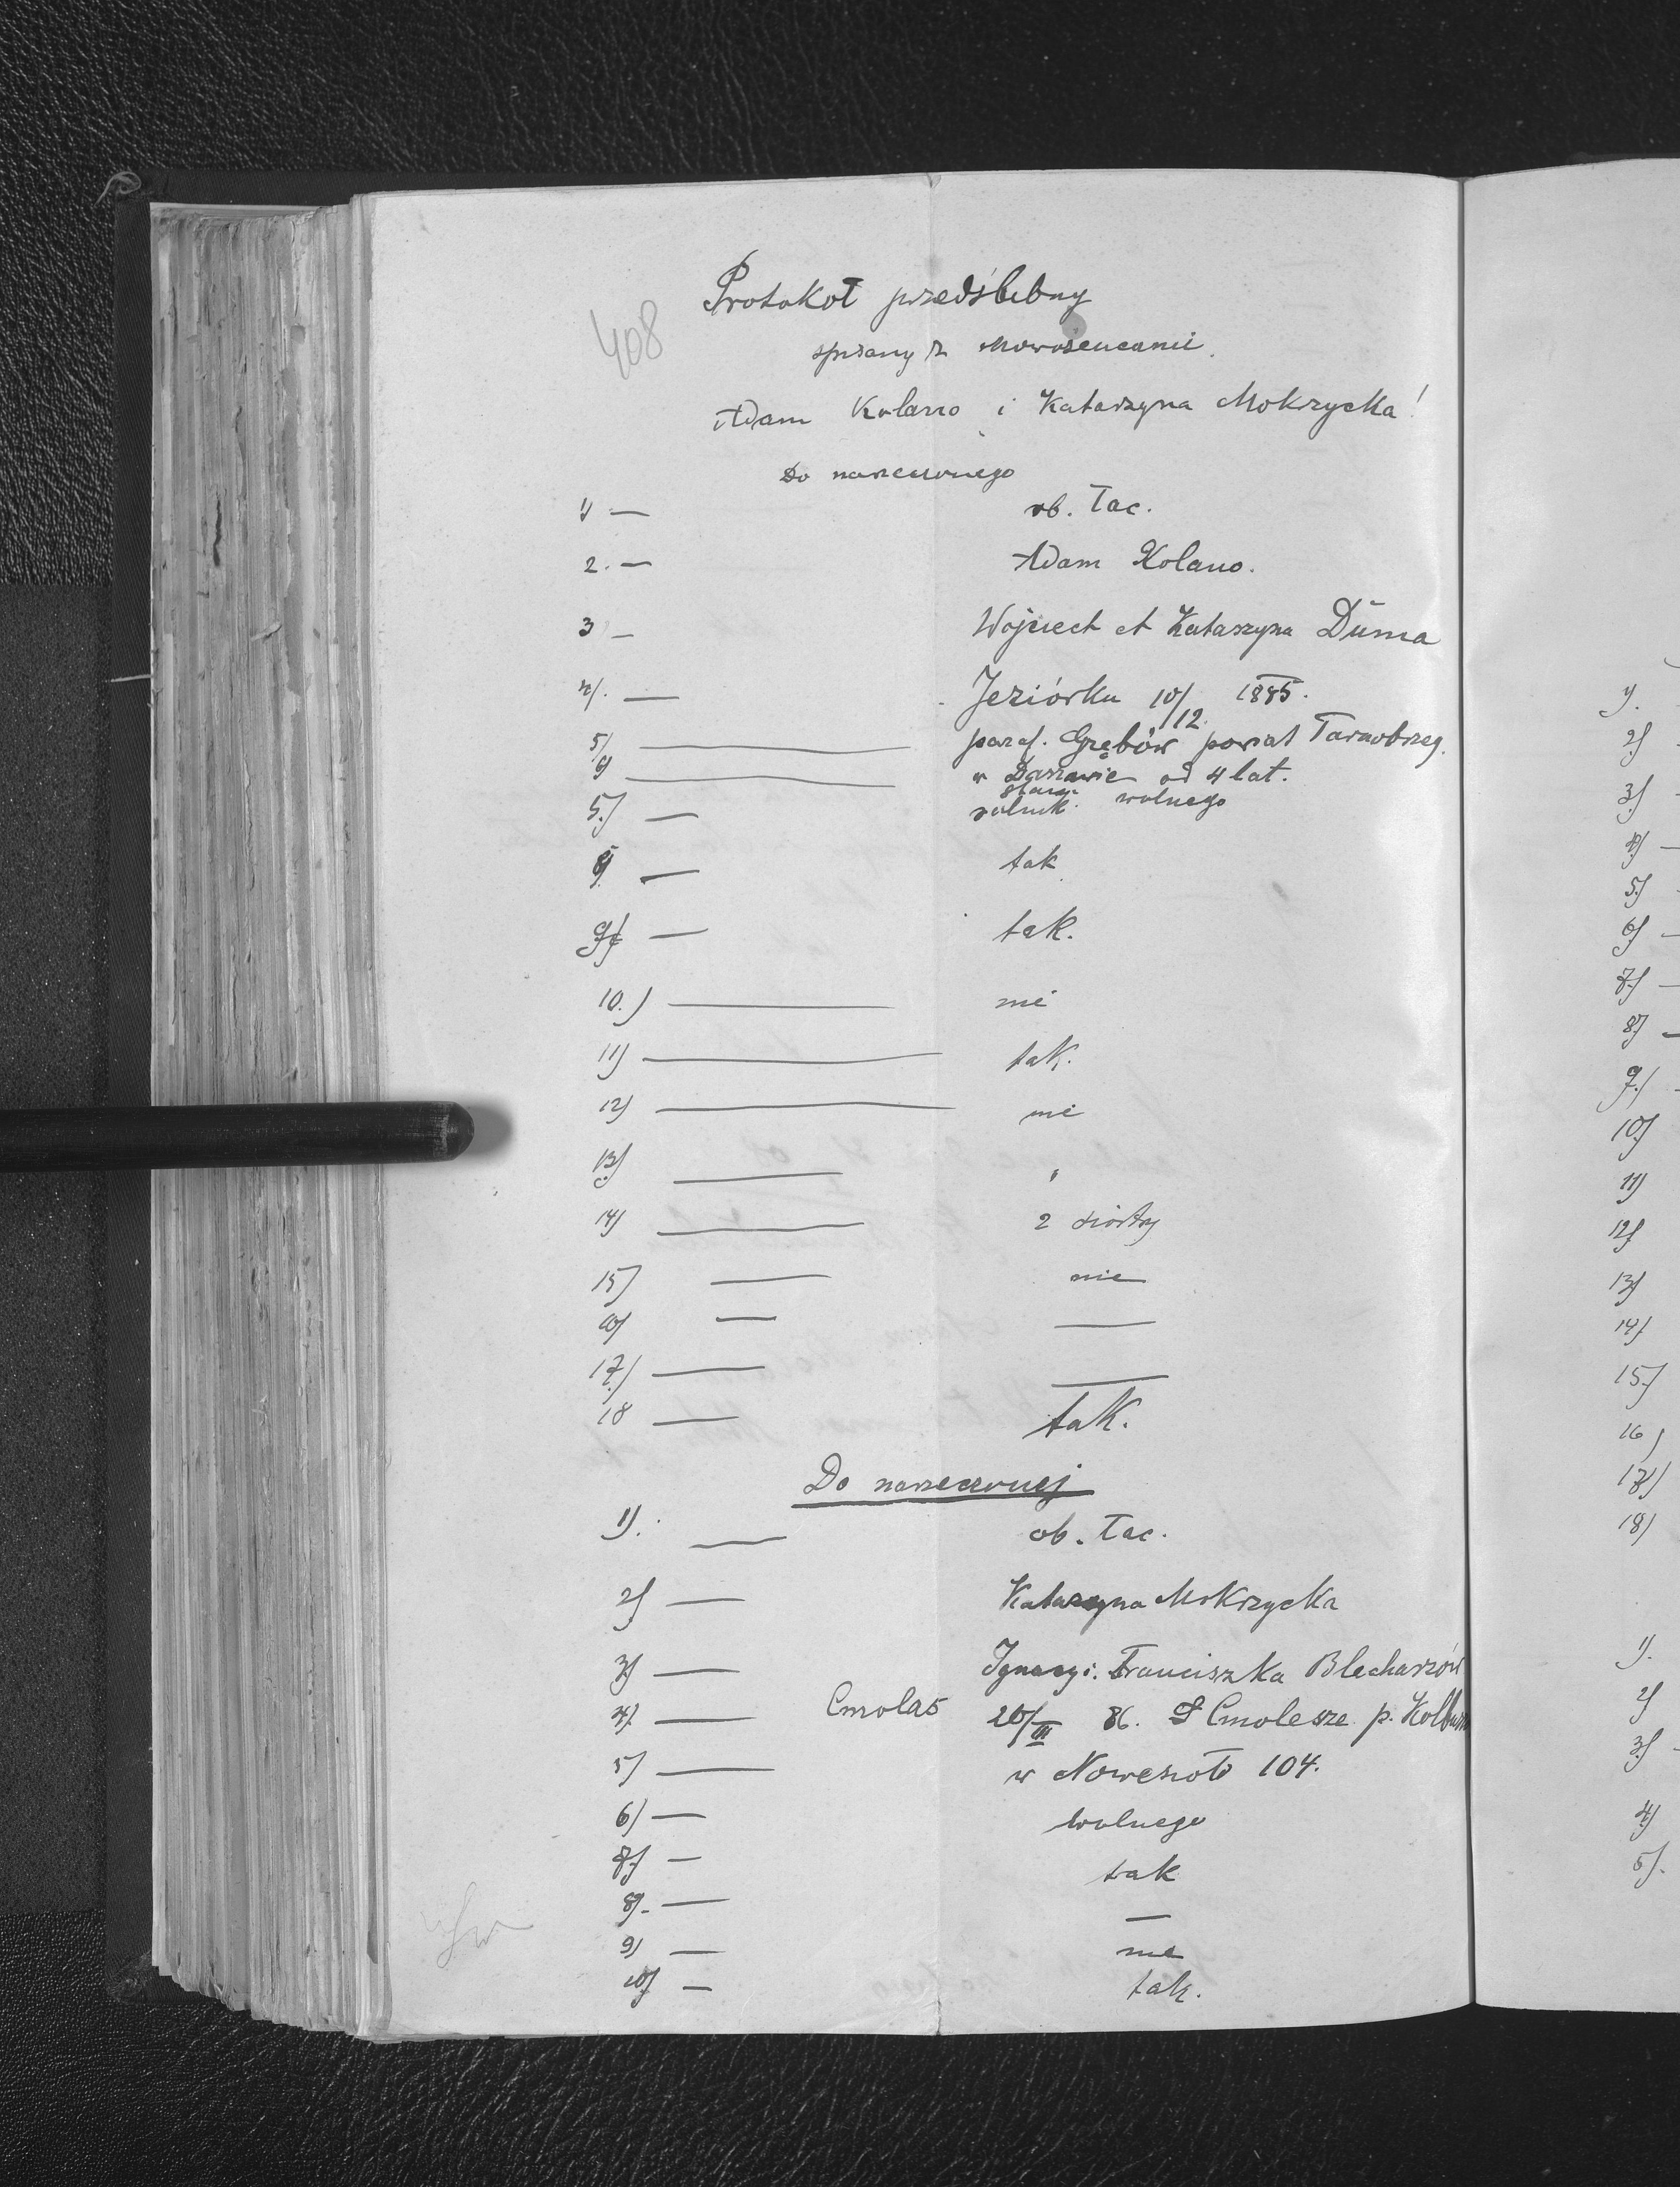 408
Protokół przedślubny
spisany z nowożeńcami
Adam Kolano i Katarzyna Mokrzycka!
Do narzeczonego
1) — ob. łac.
2. — Adam Kolano.
3) — Wojciech et Katarzyna Duma
4). — Jeziórku 10/12. 1885.
5/ — paraf. Grębów powiat Tarnobrzeg.
6) — w Daszawie od 4 lat.
stanu
5.) — rolnik. wolnego
8) — tak
9) — tak.
10.) — nie
11) — tak.
12) — nie
13) — "
14) — 2 siostry
15) — nie
16) — —
17.) — —
18 — tak.
Do narzeczonej
1). — ob. łac.
2) — Katarzyna Mokrzycka
3) — Ignacy i. Franciszka Blecharzów
4) — Cmolas 26/III 86. Cmolesze p. Kolbusz
5) — w Nowesioło 104.
6) — wolnego
7) — tak
8). — —
9) — nie
10) — tak.
1).
2)
3)
4) —
5)
6) —
7) —
8) —
9.)
10)
11)
12)
13)
14)
15.)
16)
17)
18)
1).
2)
3)
4)
5).